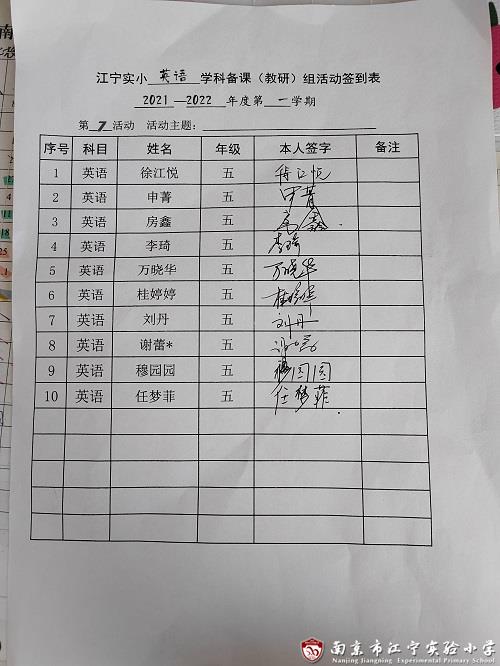 江宁实小 英语 学科备课（教研）组活动签到表
2021—2022 年度第 一 学期
第 7 活动 活动主题：
序号 科目 姓名 年级 本人签字 备注
1 英语 徐江悦 五 徐江悦
2 英语 申菁 五 申菁
3 英语 房鑫 五 房鑫
4 英语 李琦 五 李琦
5 英语 万晓华 五 万晓华
6 英语 桂婷婷 五
7 英语 刘丹 五 刘丹
8 英语 谢蕾* 五
9 英语 穆园园 五 穆园园
10 英语 任梦菲 五 任梦菲
南京市江宁实验小学
Nanjing Jiangning Experimental Primary School